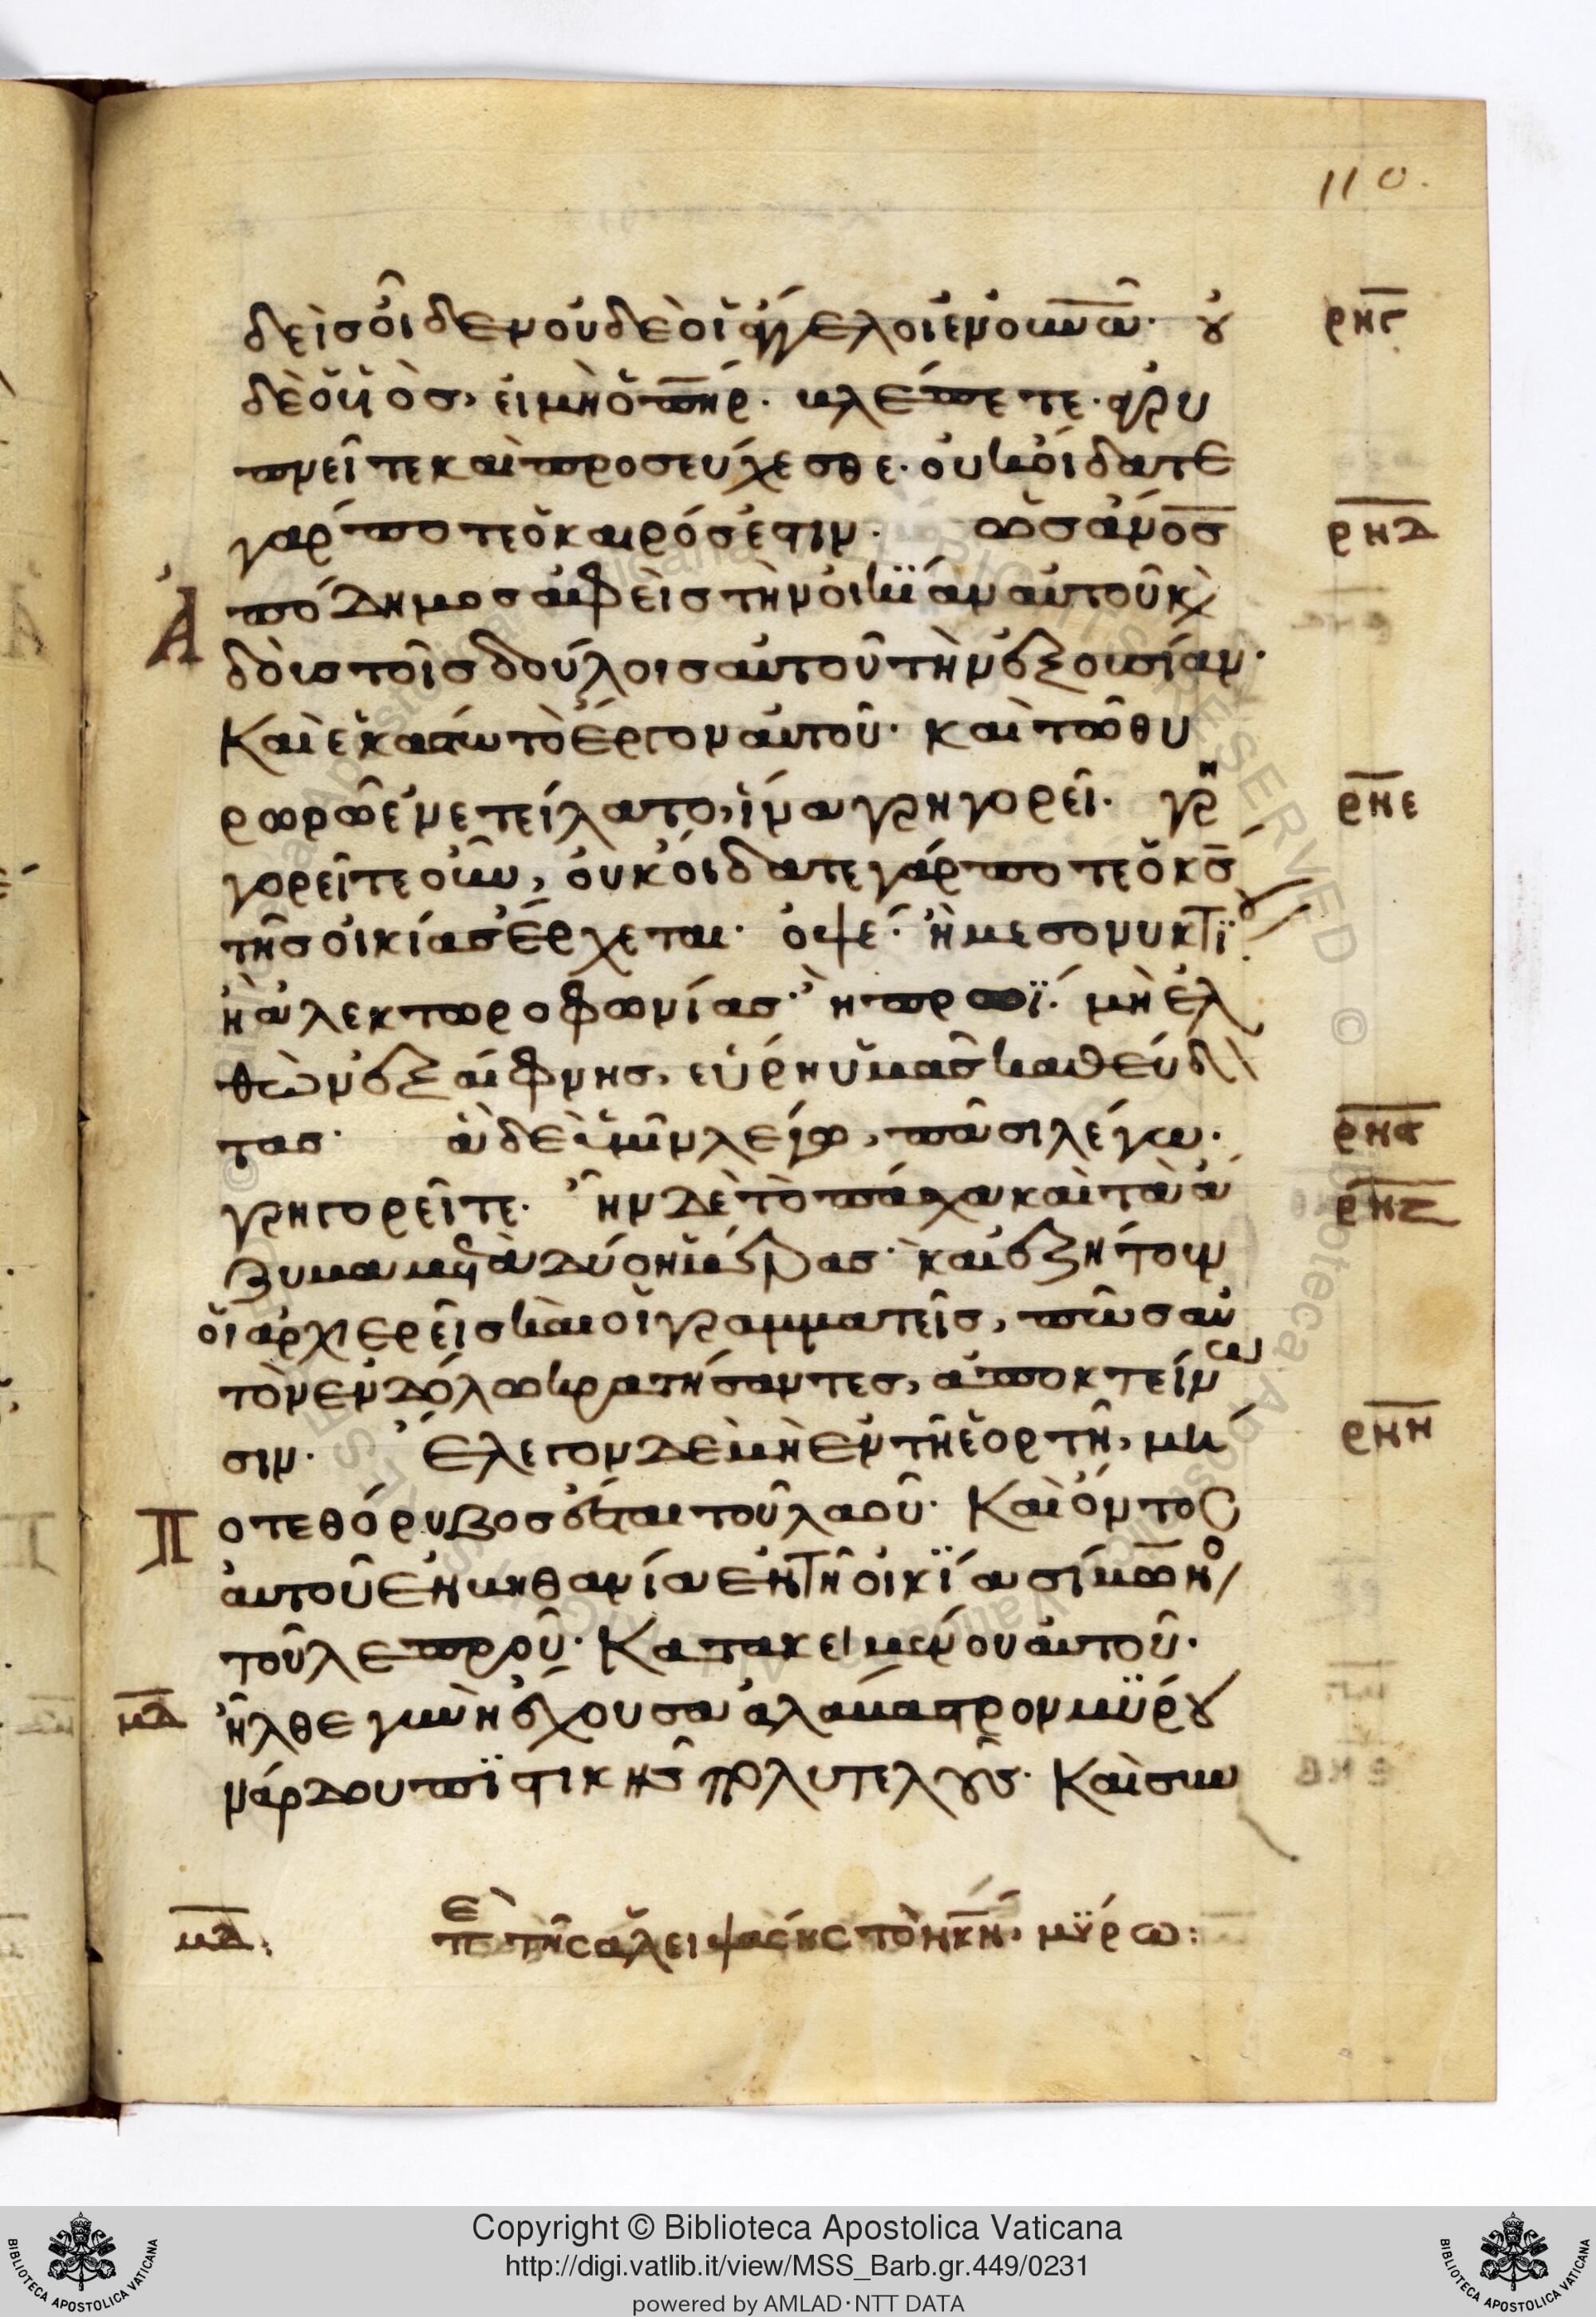 110.
δεὶσ οἶδεν οὐδὲ οἱ ἄγγελοι ἐν ο̅υ̅ν̅ω̅· οὐ
ρ̅η̅γ̅
δὲ ὁ υἱὸσ, εἰ μὴ ὁ π̅η̅ρ̅. βλέπετε· ἀγρυ
πνεῖτε καὶ προσεύχεσθε· οὐκ οἴδατε
γὰρ πότε ὁ καιρόσ ἐστιν· ὡσ ἄν̅ο̅σ̅
ρ̅η̅δ̅
ἀπόδημοσ ἀφεὶσ τὴν οἰκΐαν αὐτοῦ κὶ
δοὺσ τοῖσ δούλοισ αὐτοῦ τὴν ἐξουσίαν·
Καὶ ἑκάστω τὸ ἔργον αὐτοῦ· καὶ τῶ θυ
ρωρῶ ἐνετείλατο, ἵνα γρηγορεῖ. γρη
ρ̅η̅ε̅
γορεῖτε οὖν, οὐκ οἴδατε γάρ πότε ὁ κ̅σ̅
τῆσ οἰκίασ ἔρχεται· ὀψέ· ἢ μεσονυκτΐου·
ἢ ἀλεκτωροφωνίασ· ἢ πρωΐ. μὴ ἐλ
θὼν ἐξαίφνησ, εὕρη ὑμᾶσ καθεύδον
τασ· ἃ δὲ ὑμῖν λέγω, πᾶσι λέγω.
ρ̅η̅ϛ̅
γρηγορεῖτε. ἦν δὲ τὸ πάσχα καὶ τὰ ἄ
ρ̅η̅ζ̅
ζυμα μετὰ δύο ἡμέρασ· καὶ ἐζήτουν
οἱ ἀρχιερεῖσ καὶ οἱ γραμματεῖσ, πῶσ αὐ
τὸν ἐν δόλω κρατήσαντεσ, ἀποκτείνω
σιν. Ἔλεγον δὲ μὴ ἐν τῆ ἑορτῆ, μή
ρ̅η̅η̅
ποτε θόρυβοσ ἔσται τοῦ λαοῦ. Καὶ ὄντοσ
αὐτοῦ ἐν βηθανία ἐν τῆ οἰκΐα σίμωνοσ
τοῦ λεπροῦ. Κατακειμένου αὐτοῦ.
μ̅δ̅
ἦλθε γυνὴ ἔχουσα ἀλάβαστρον μΰρου
νάρδου πϊστικῆσ πολυτελοῦσ· Καὶ συν
μ̅δ̅: Πὲ τῆς ἀλειψάσης τὸν κ̅ν̅, μΰρω:
Copyright © Biblioteca Apostolica Vaticana
http://digi.vatlib.it/view/MSS_Barb.gr.449/0231
powered by AMLAD·NTT DATA
BIBLIOTECA APOSTOLICA VATICANA
BIBLIOTECA APOSTOLICA VATICANA